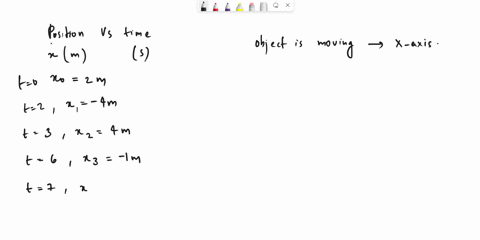 Position Vs time
x (m) (s)
object is moving → x-axis.
t=0 x₀ = 2 m
t=2 , x₁ = -4m
t = 3 , x₂ = 4 m
t = 6 , x₃ = -1m
t = 7 , x